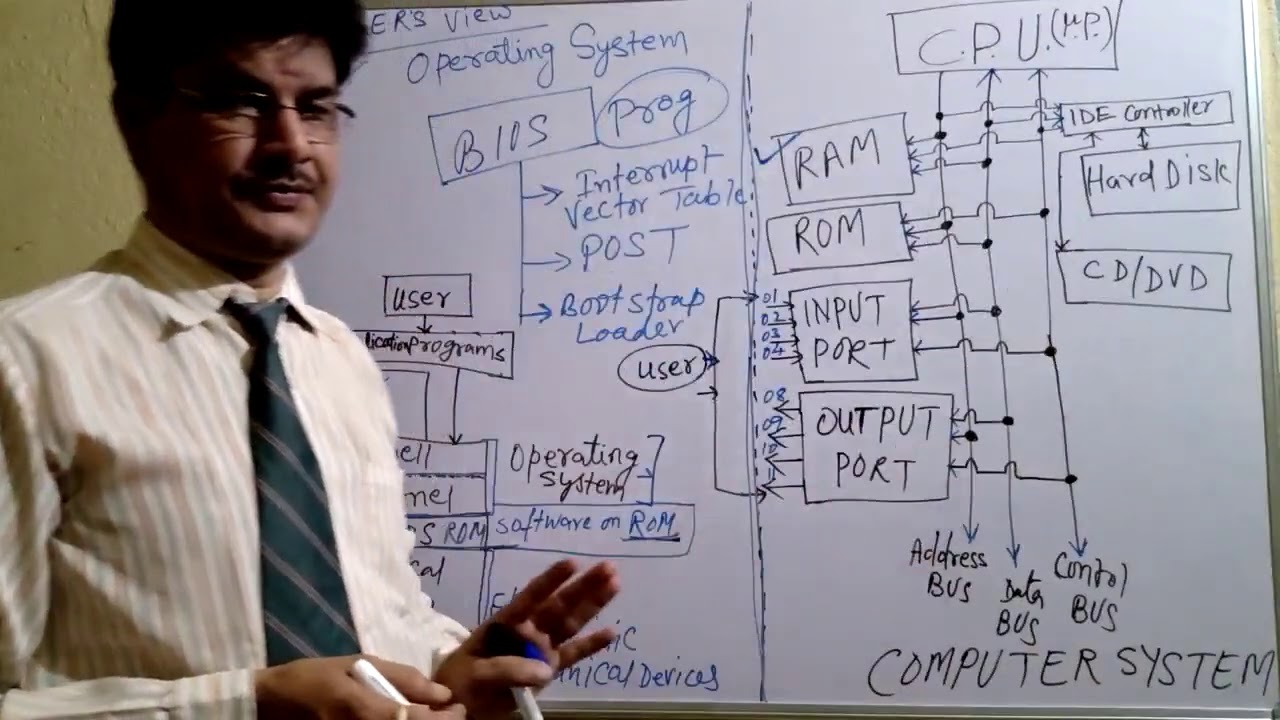 ER'S View
Operating System
BIOS
Prog
Interrupt
Vector Table
POST
Bootstrap
Loader
user
Programs
user
Operating
System
Software on ROM
ROM
Devices
C.P.U. (μ.P.)
IDE Controller
Hard Disk
CD/DVD
RAM
ROM
01
02
03
04
INPUT
PORT
08
09
OUTPUT
PORT
Address
BUS
Data
BUS
Control
BUS
COMPUTER SYSTEM